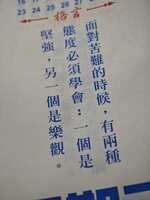 23 24 25 26 27 28
格言
面對苦難的時候，有兩種
態度必須學會：一個是
堅強，另一個是樂觀。